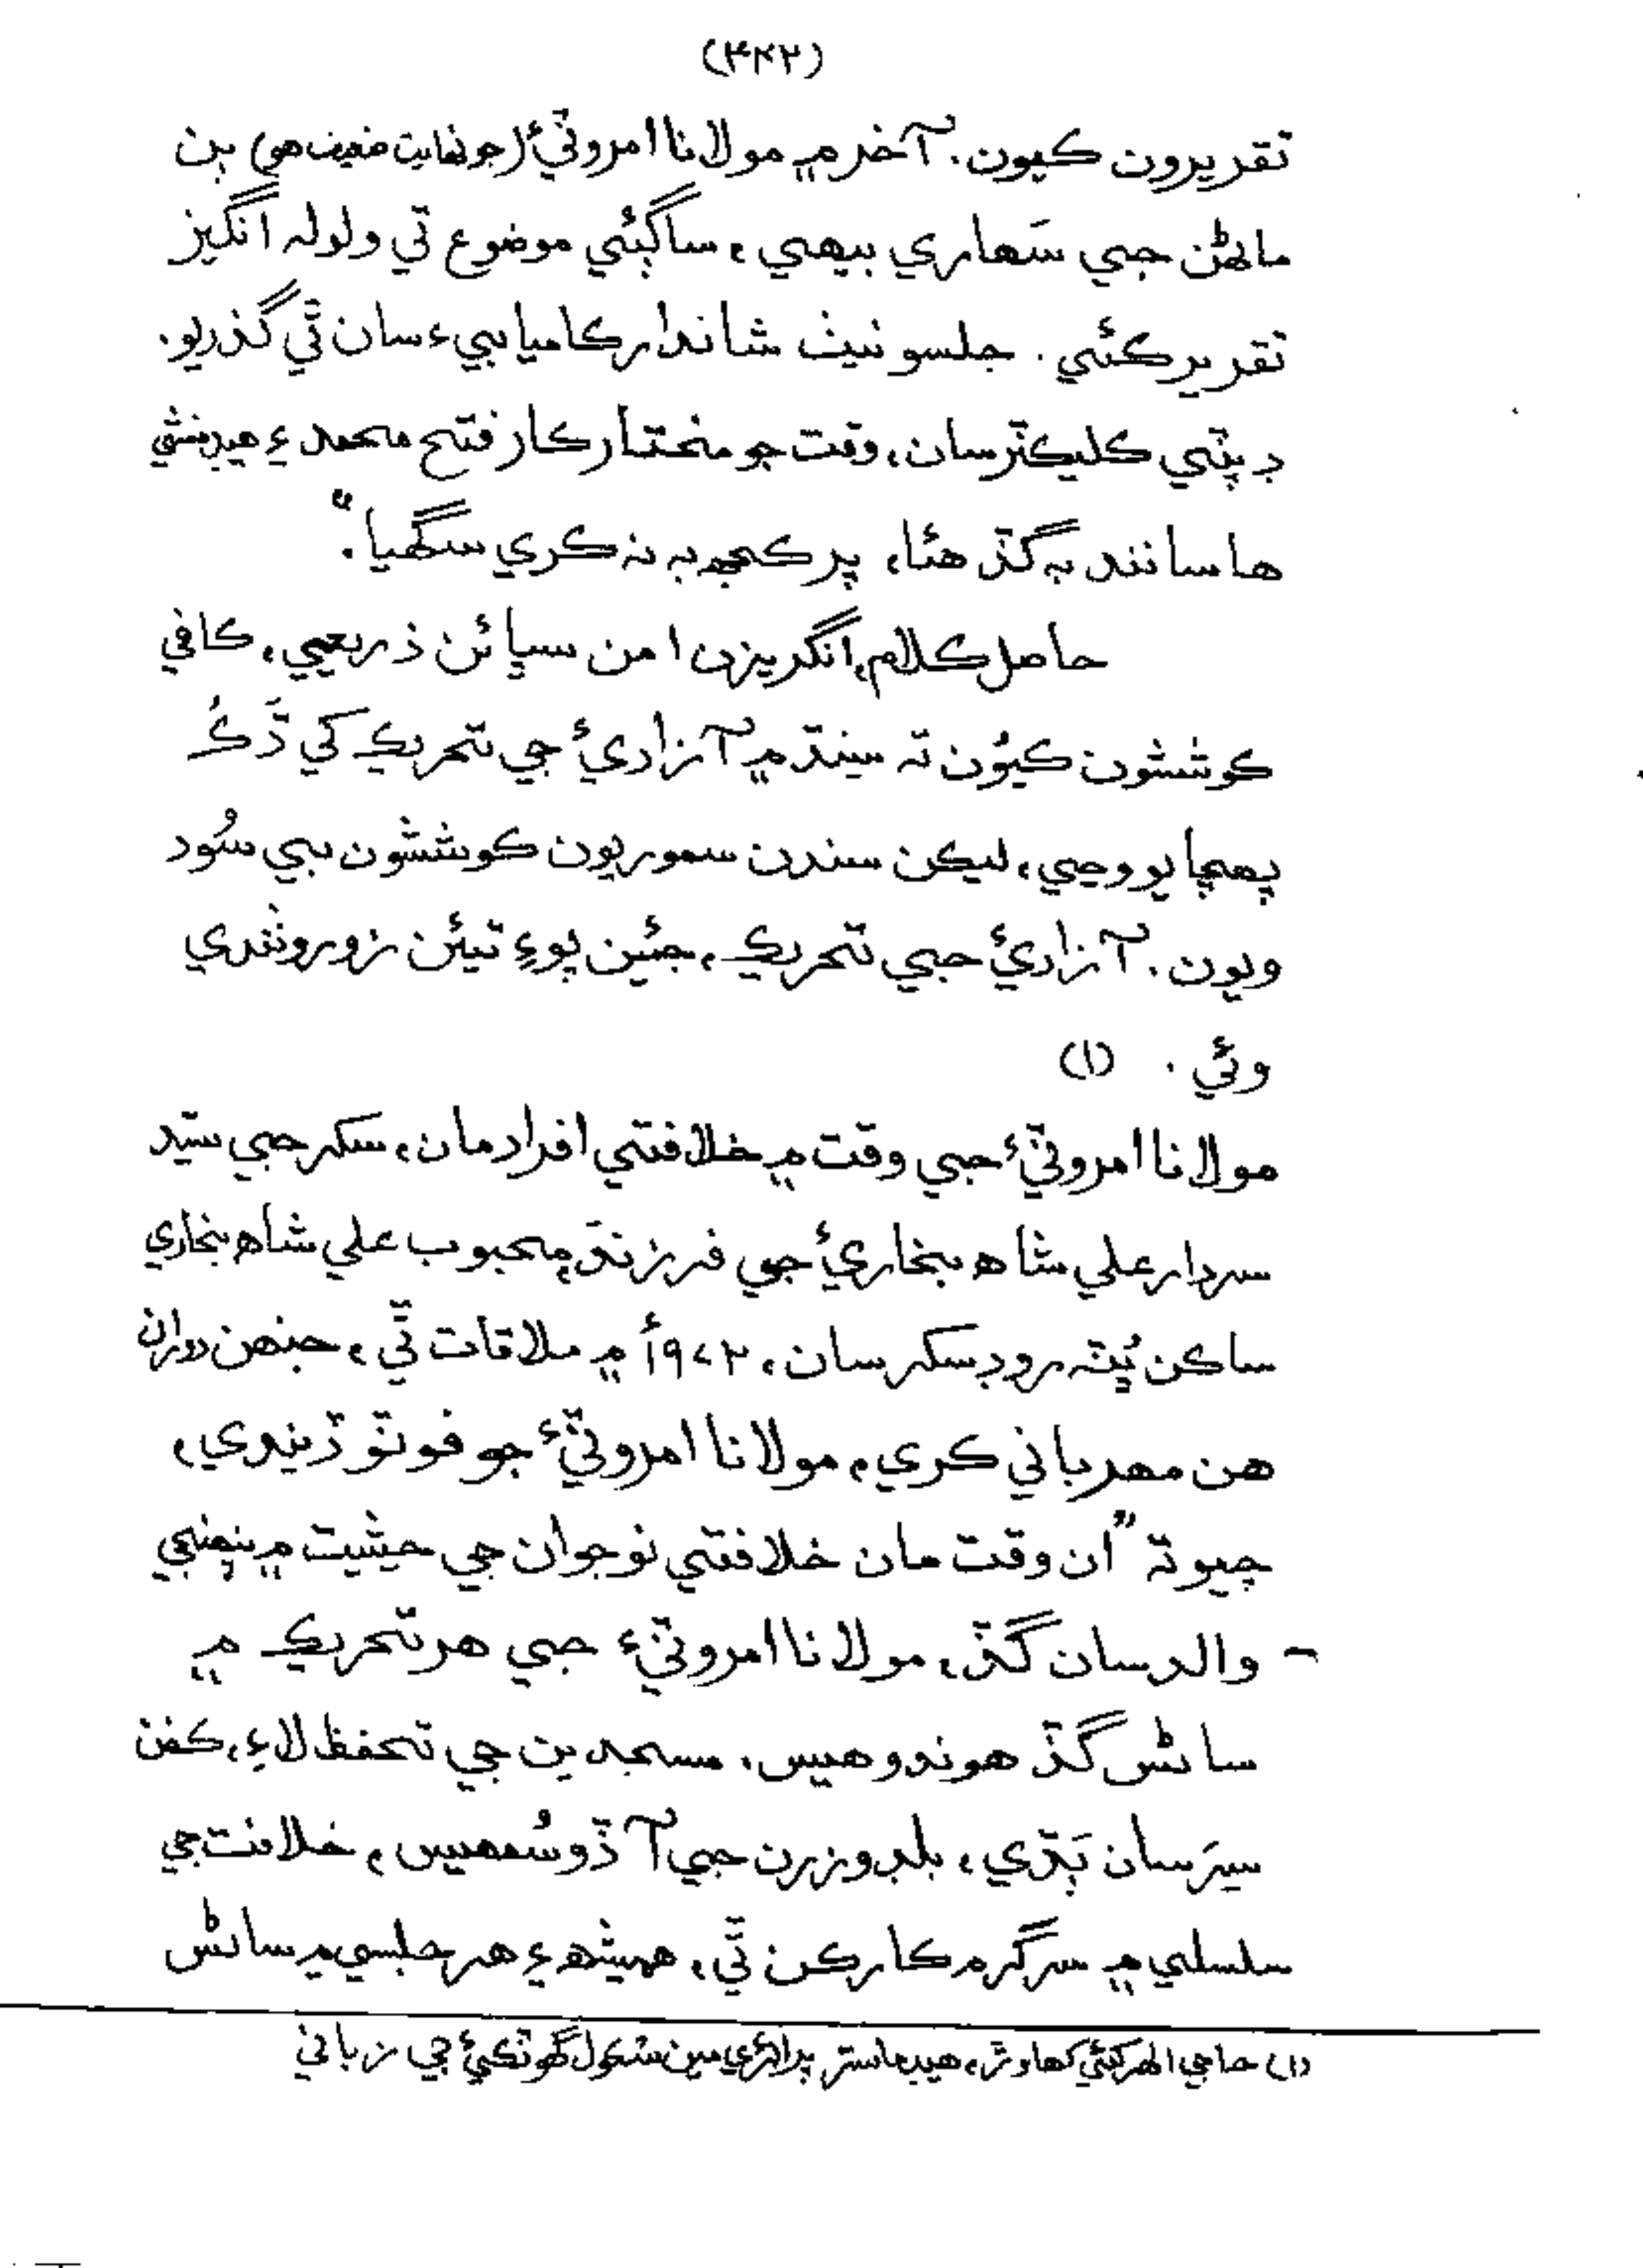 (۳۲۲)
تقريرون ڪيون. آخر ۾ مولانا امروٽيءَ (جو نهايت ضعيف هو) ٻن
ماڻهن جي سَهاري بيهي، ساڳئي موضوع تي ولوله انگيز
تقرير ڪئي. جلسو نيٺ شاندار ڪاميابيءَ سان ٿي گذريو.
ڊپٽي ڪليڪٽر سان، وقت جو مختيارڪار فتح محمد ۽ هيڊ منشي
هاسانند به گڏ هئا، پر ڪجهه به نه ڪري سگهيا."
حاصل ڪلام، انگريزن امن سڀائن ذريعي، ڪافي
ڪوششون ڪيُون ته سنڌ ۾ آزاديءَ جي تحريڪ کي ڌَڪُ
پهچايو وڃي، ليڪن سندن سموريون ڪوششون بي سُود
ويون. آزاديءَ جي تحريڪ، جئين پوءِ تيئن زور وٺندي
وئي. (۱)
مولانا امروٽيءَ جي وقت ۾ خلافتي افراد مان، سکر جي سيّد
سردار علي شاهه بخاريءَ جي فرزند، محبوب علي شاهه بخاري
ساڪن پُٽه روڊ سکر سان، ۱۹۷۲ع ۾ ملاقات ٿي، جنهن دوران
هن مهرباني ڪري، مولانا امروٽيءَ جو فوٽو ڏيندي،
چيو ته "ان وقت مان خلافتي نوجوان جي حيثيت ۾ پنهنجي
والد سان گڏ، مولانا امروٽيءَ جي هر تحريڪ ۾
ساڻس گڏ هوندو هيس، مسجدين جي تحفظ لاءِ، ڪفن
سِرَ سان ٻَڌي، بلڊوزرن جي آڏو سُمهيس، خلافت جي
سلسلي ۾ سرگرم ڪارڪن ٿي، هميشه ۽ هر جلسي ۾ ساڻس
(۱) حاجي الهر کئي کهاوڙ، هيڊ ماستر پرائمري مين اسڪول گهوٽڪيءَ جي زباني